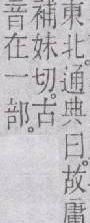 東北。通典曰。故鄘
補妹切。古
音在一部。